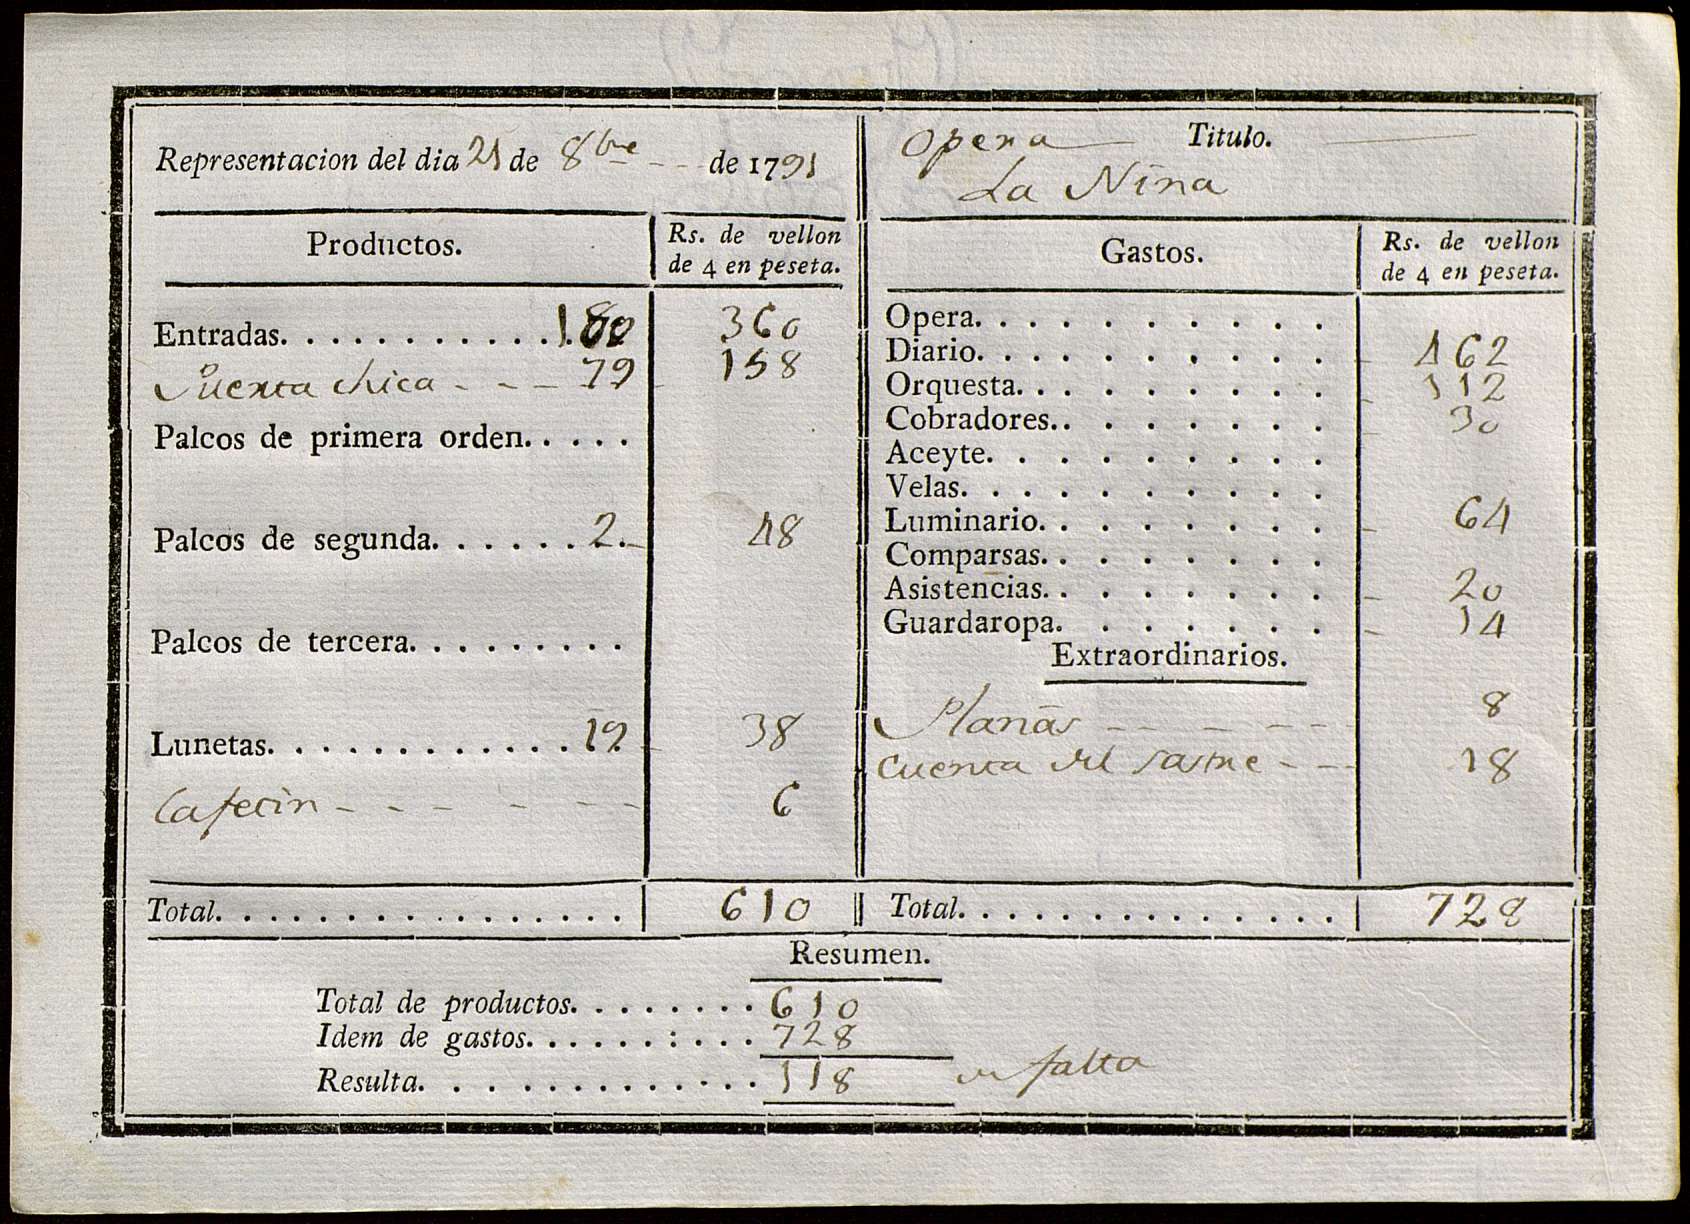 Representacion del dia 21 de 8bre de 1791
Productos. Rs. de vellon
de 4 en peseta.
Entradas. 180 360
Puerta chica 79 158
Palcos de primera orden.
Palcos de segunda. 2. 48
Palcos de tercera.
Lunetas. 19 38
Cafetin 6
Total. 610
Opera Titulo.
La Nina
Gastos. Rs. de vellon
de 4 en peseta.
Opera.
Diario. 462
Orquesta. 112
Cobradores. 30
Aceyte.
Velas.
Luminario. 64
Comparsas.
Asistencias. 20
Guardaropa. 14
Extraordinarios.
Planas 8
Cuenta del sastre 18
Total. 728
Resumen.
Total de productos. 610
Idem de gastos. 728
Resulta. 118 de falta